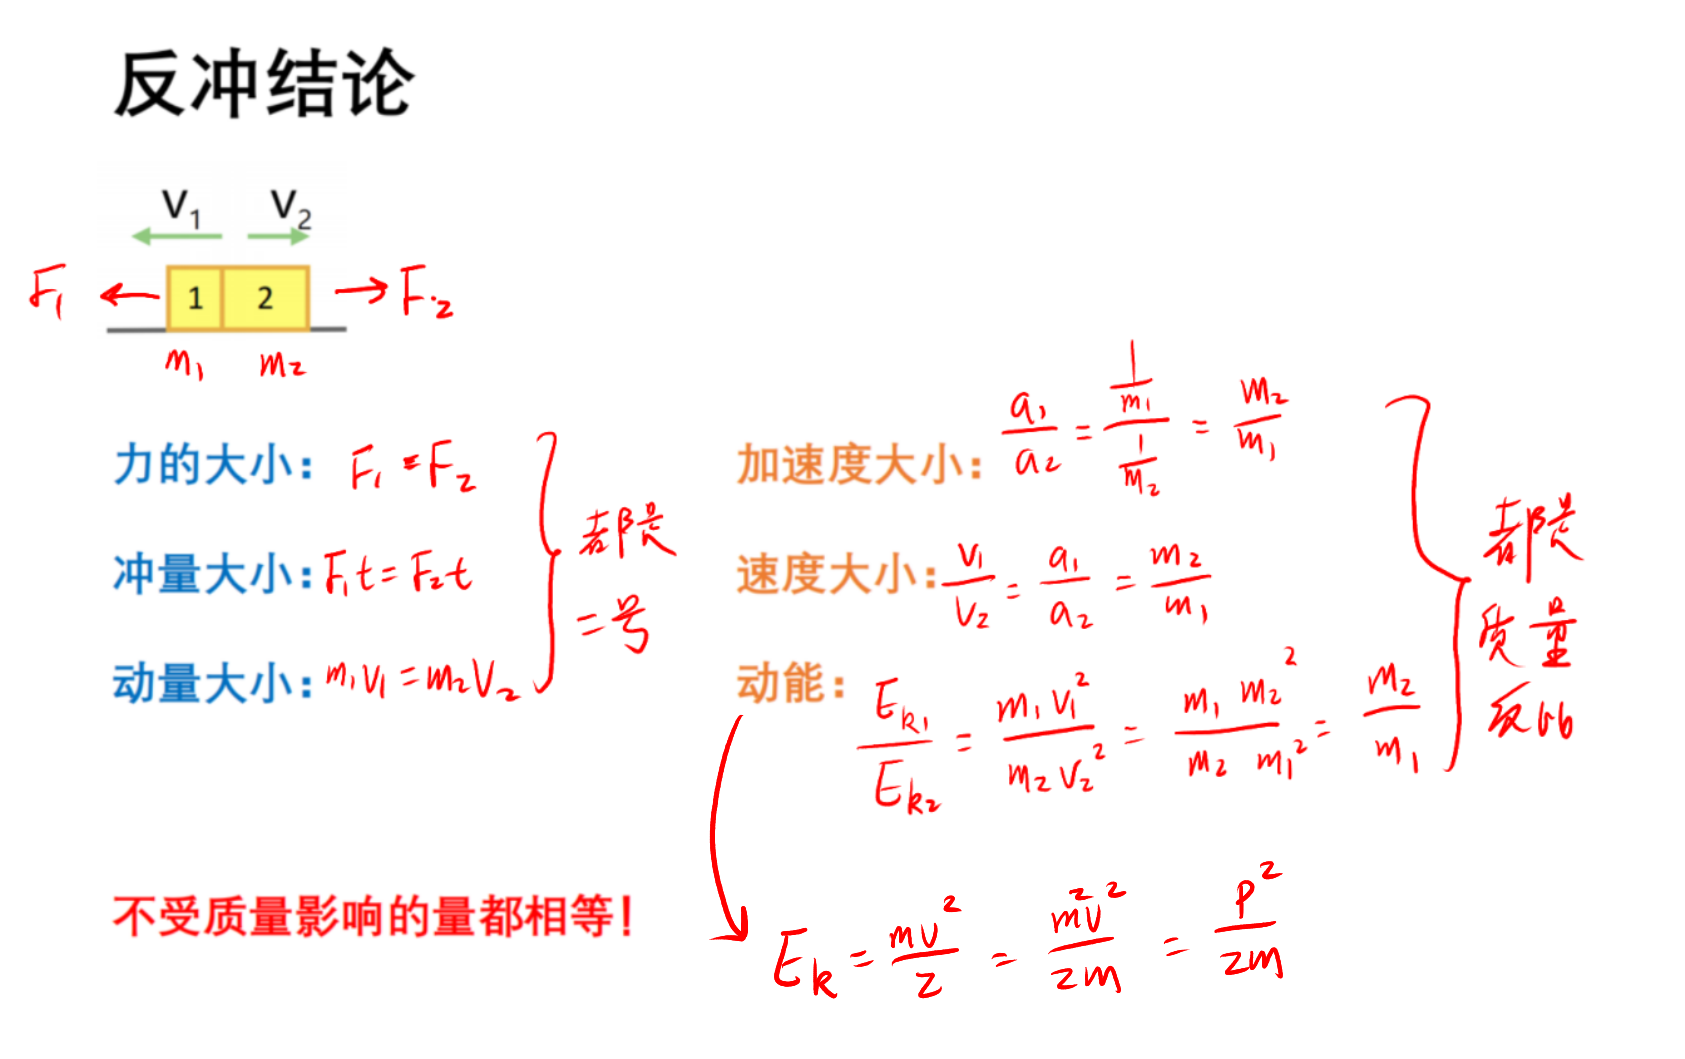 反冲结论
V₁ V₂
F₁ 1 2 F₂
m₁ m₂
力的大小： F₁ = F₂
冲量大小： F₁t = F₂t
动量大小： m₁v₁ = m₂v₂
都是
=号
加速度大小： a₁/a₂ = (1/m₁)/(1/m₂) = m₂/m₁
速度大小： v₁/v₂ = a₁/a₂ = m₂/m₁
动能： Eₖ₁/Eₖ₂ = m₁v₁²/m₂v₂² = m₁m₂²/m₂m₁² = m₂/m₁
都是
质量
反比
不受质量影响的量都相等！
Eₖ = mv²/2 = m²v²/2m = P²/2m